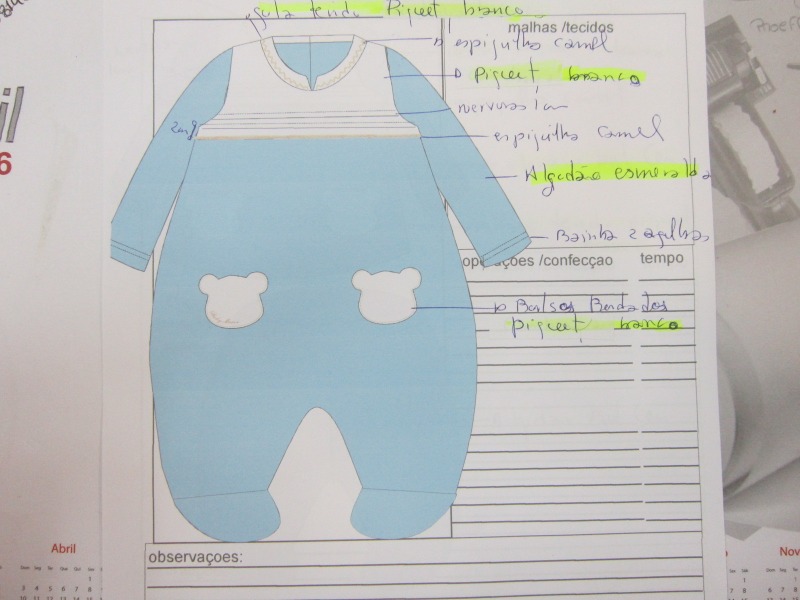 gula tecido Piquet branco
malhas /tecidos
espiguilha camel
Piquet branco
nervuras 1 cm
2 cm
espiguilha camel
Algodão esmeralda
Bainha 2 agulhas
confecçao tempo
Bolsos Bordados
piquet branco
observaçoes:
il
6
Abril
Nov